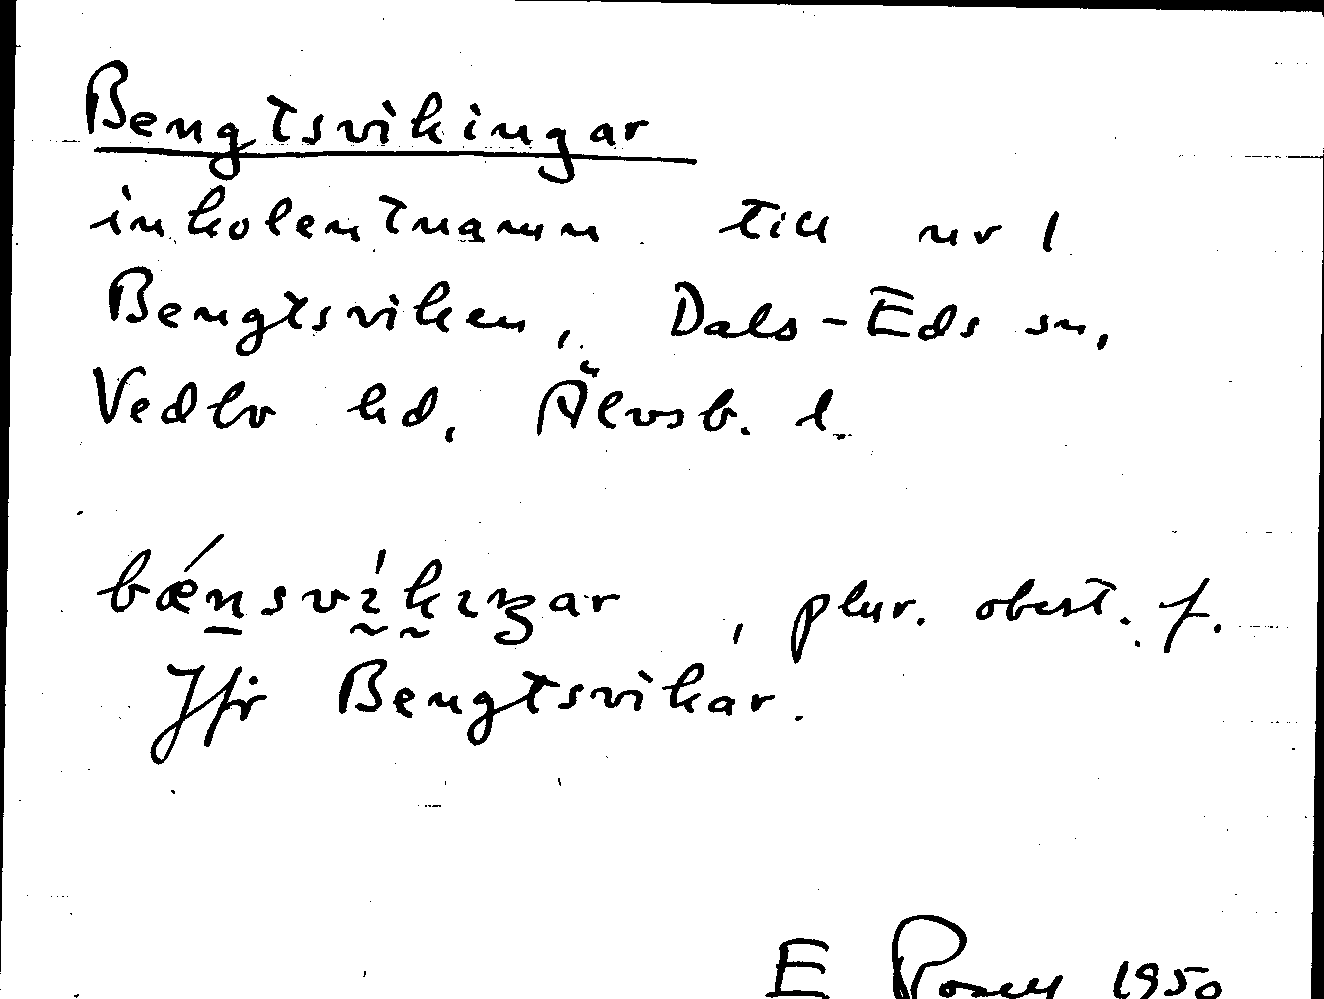 Bengtsvikingar
inkolentnamn till nr 1
Bengtsviken, Dals-Eds sn,
Vedbo hd, Älvsb. l.
bǽnsvı̍kıŋar, plur. obest. f.
Jfr Bengtsvikar.
E Rosell 1950